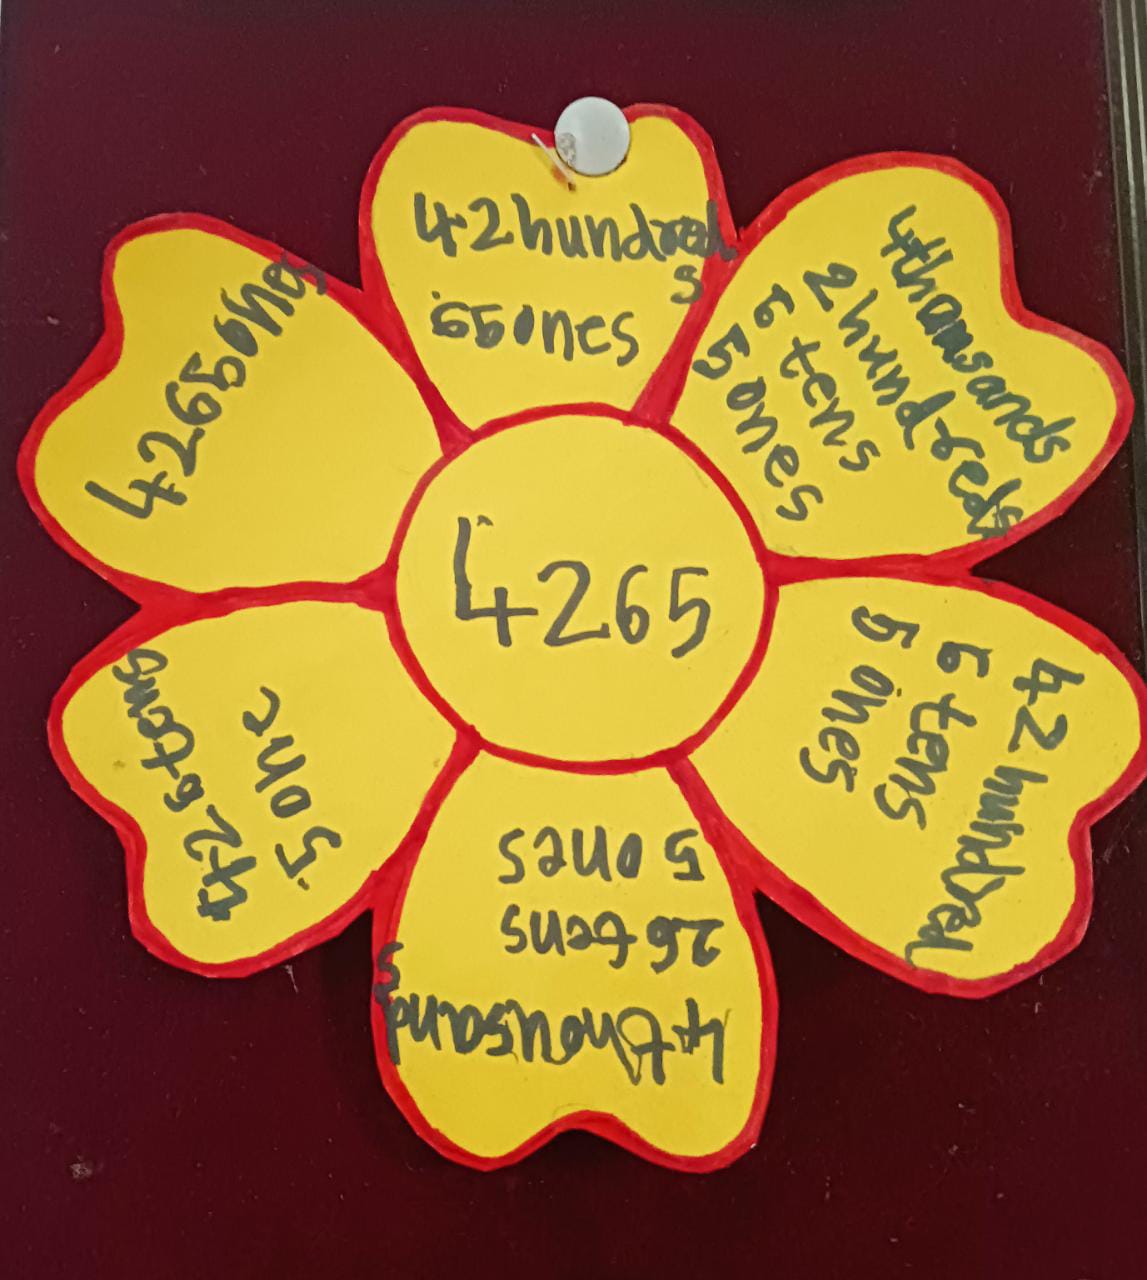 4265
42hundred
s
65ones
4thousands
2hundreds
6 tens
5 ones
42 hundred
6 tens
5 ones
4thousand
s
26 tens
5 ones
426tens
5 one
4265ones